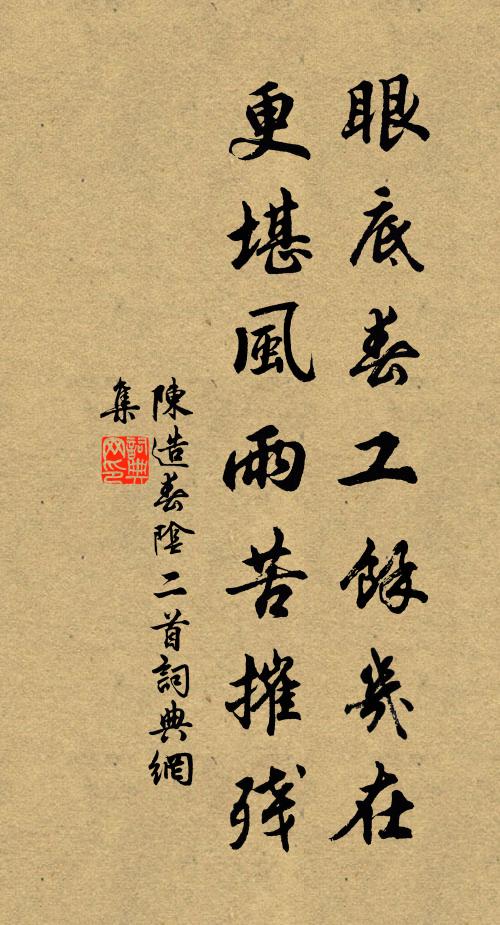 眼底春工餘幾在
更堪風雨苦摧残
陳造春陰二首詞典網
集
詞典网印